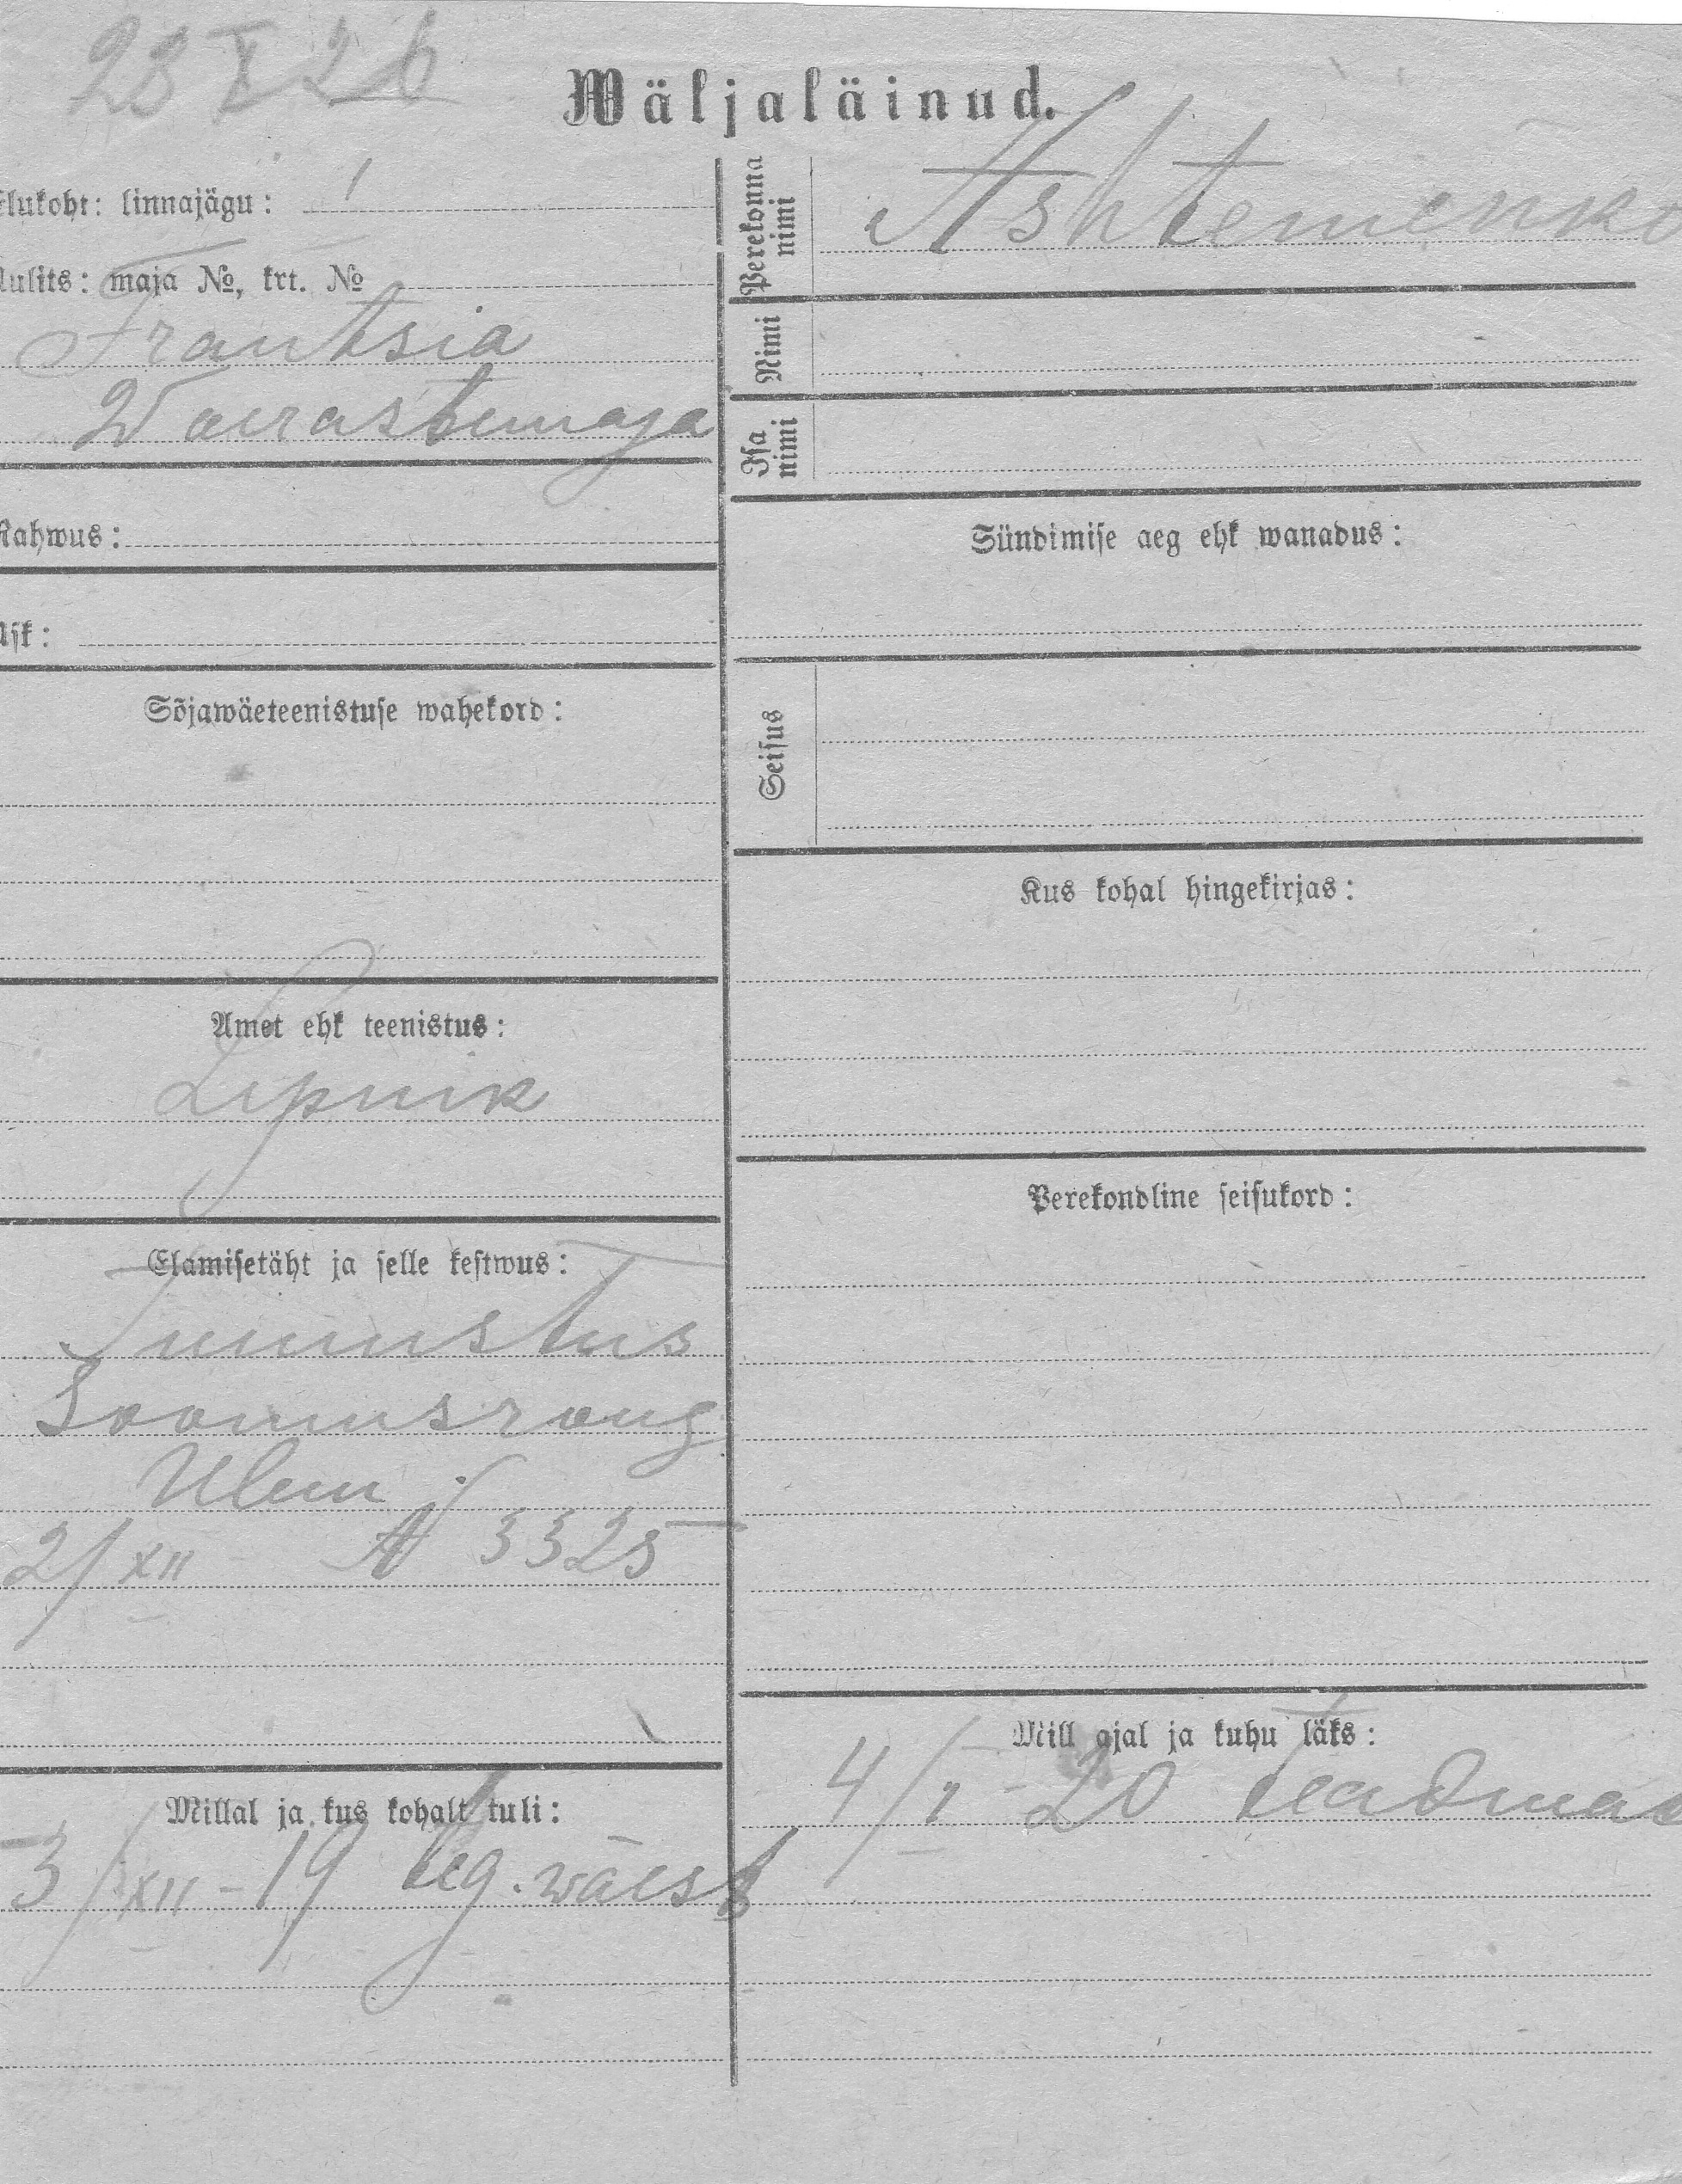 28 X 26
Wäljaläinud.
Elukoht: linnajägu: 1
Uulits: maja №, krt. №
Frantsia
Woerastemaja
Rahwus:
Usk:
Sõjawäeteenistuse wahekord:
Amet ehk teenistus:
Lipnik
Elamisetäht ja selle kestwus:
Tunnistus
Soomusrong
Ulem
2/XII N 3325
Millal ja kus kohalt tuli:
3/XII-19 teg. wäest
Perekonna nimi
Ashtemenko
Nimi
Isa nimi
Sündimise aeg ehk wanadus:
Seisus
Kus kohal hingekirjas:
Perekondline seisukord:
Mill ajal ja kuhu läks:
4/I-20 teadmat